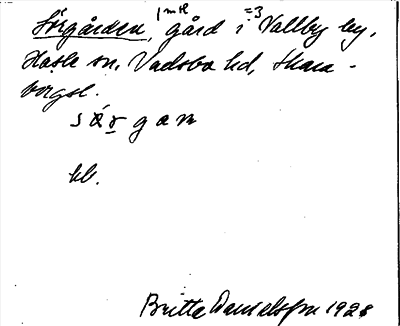 Sörgården, 1 mtl =3 gård i Vallby by,
Hasle sn, Vadsbo hd, Skara-
borgsl.
sǿr gan
kb.
Britta Danielsson 1928